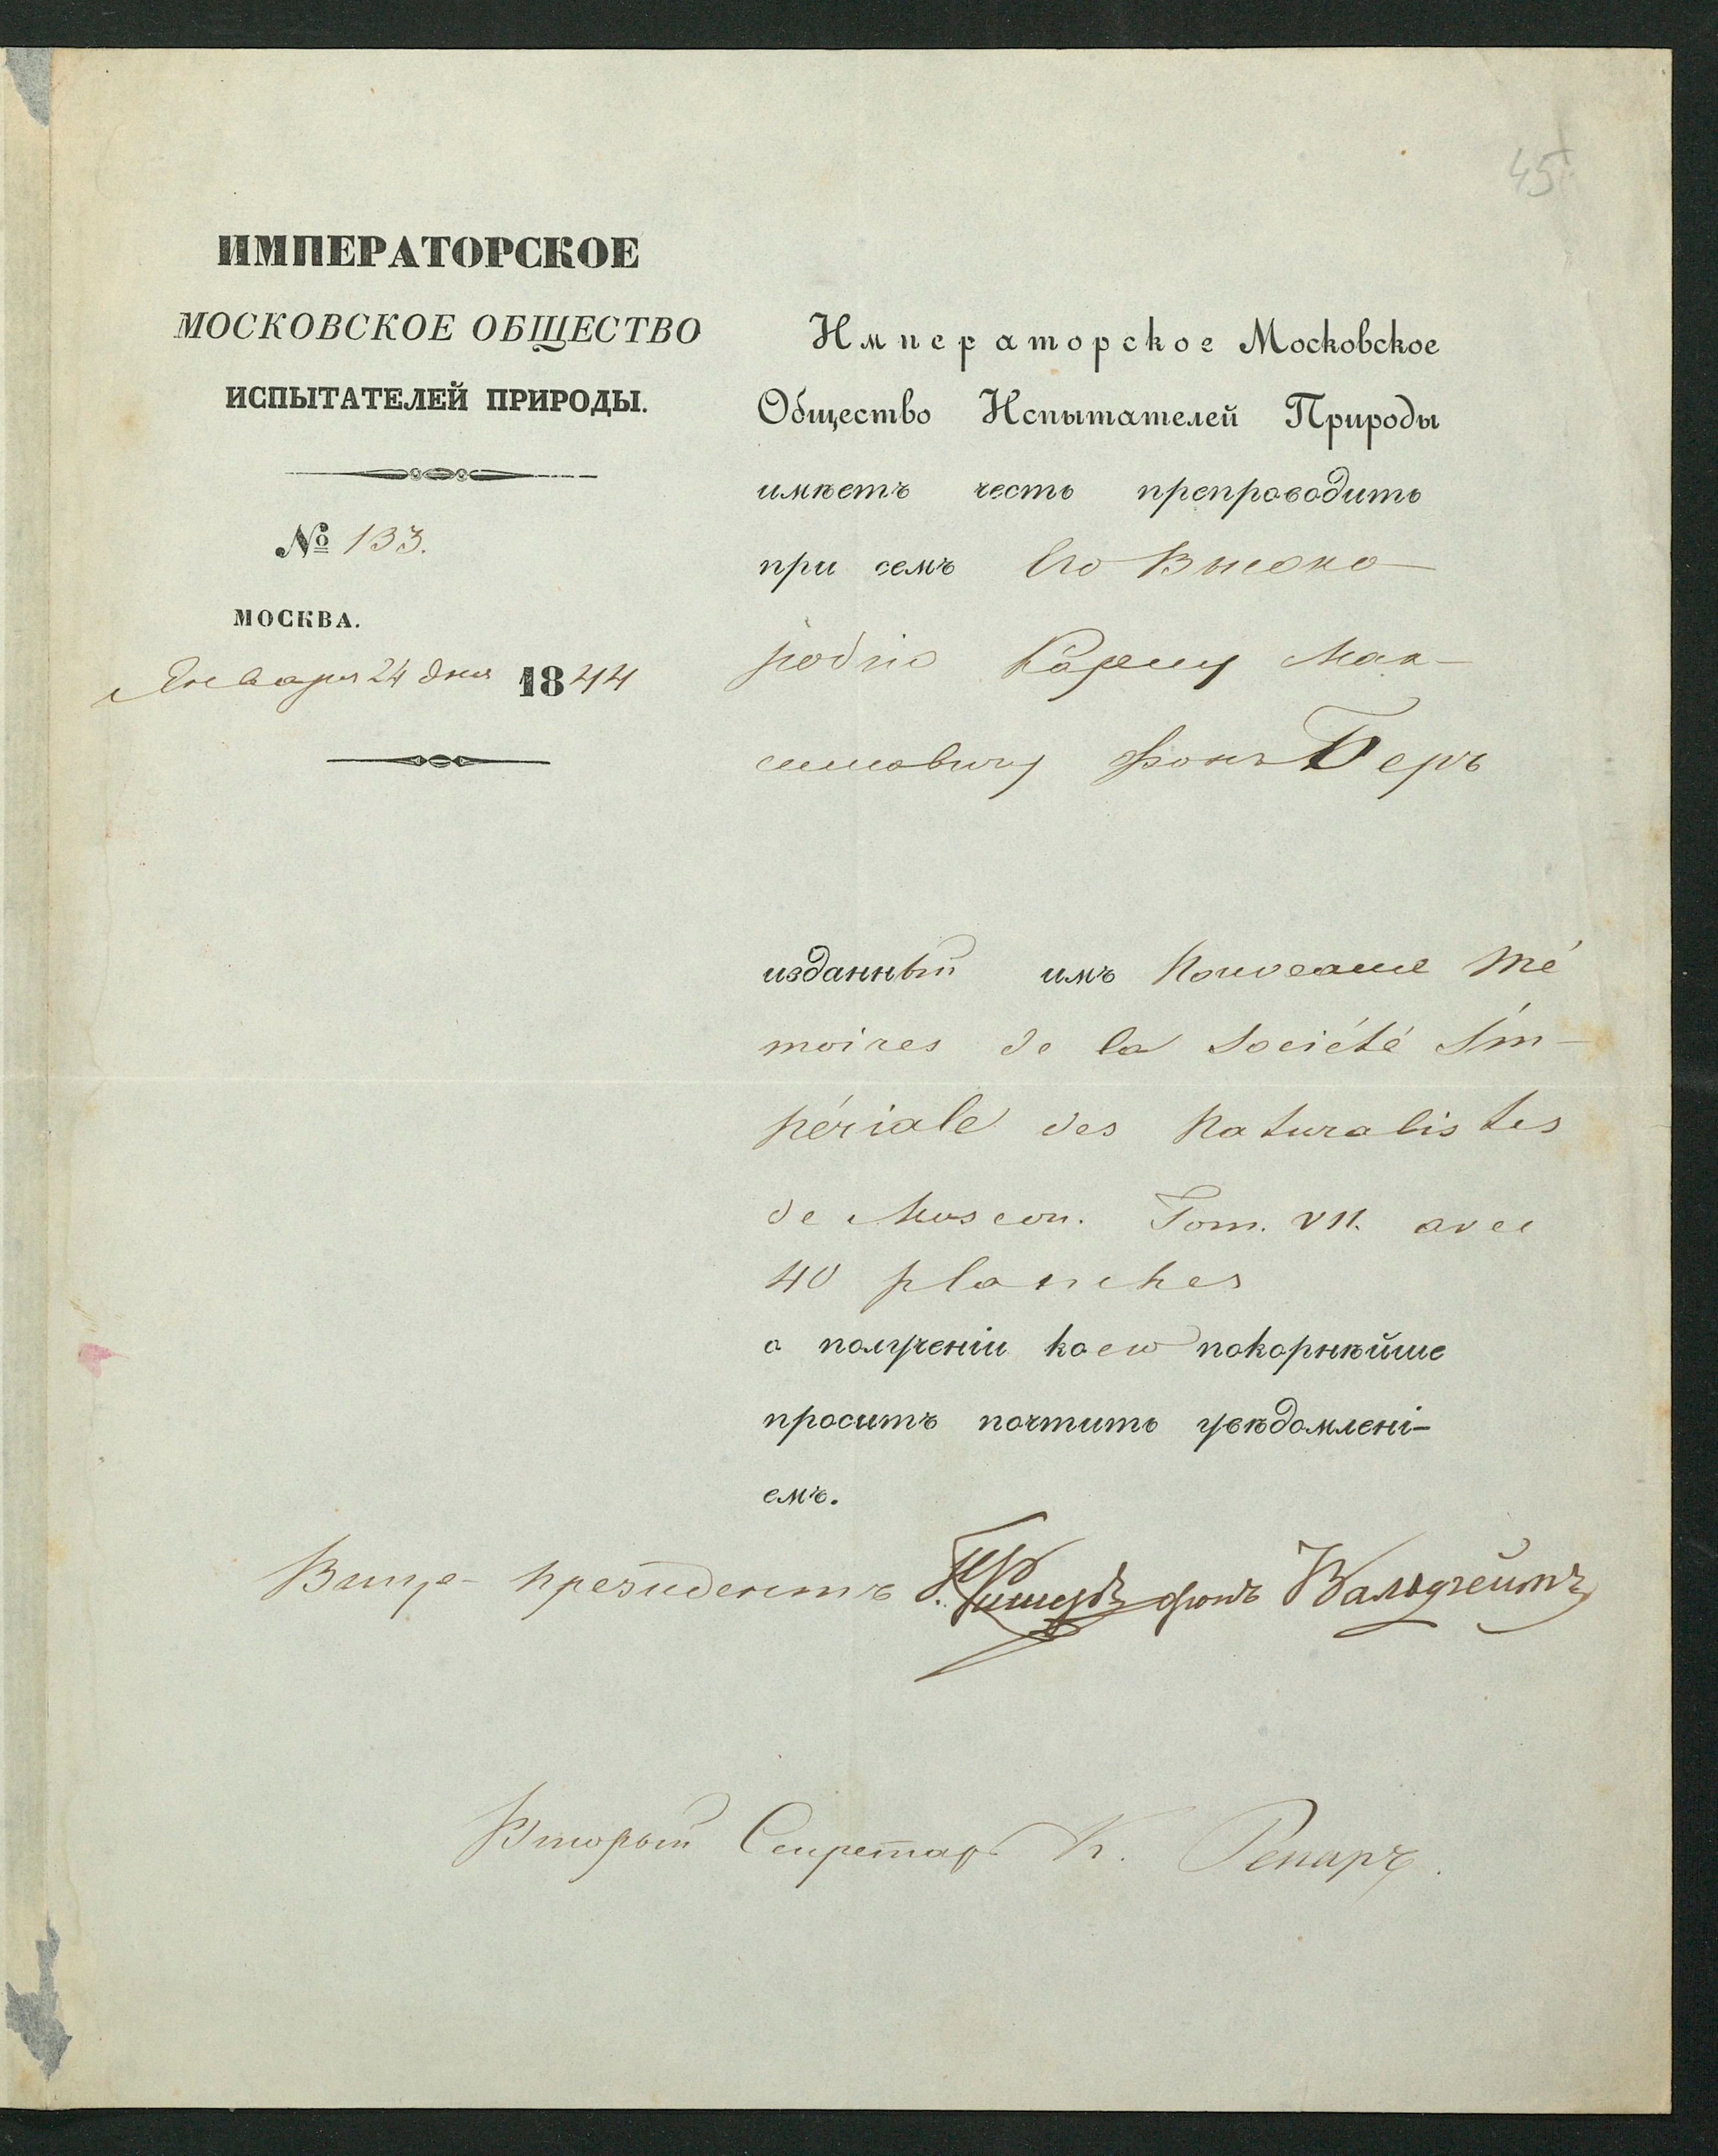 45
ИМПЕРАТОРСКОЕ
МОСКОВСКОЕ ОБЩЕСТВО
ИСПЫТАТЕЛЕЙ ПРИРОДЫ.
№ 133.
МОСКВА.
Января 24 дня 1844
Императорское Московское
Общество Испытателей Природы
имѣетъ честь препроводить
при семъ Его Высоко-
родію Карлу Мак-
симовичу фонъ Беръ
изданный имъ Nouveaux Mé
moires de la Société Im-
périale des Naturalistes
de Moscou. Tom. VII. avec
40 planches
о полученіи коего покорнѣйше
проситъ почтить увѣдомлені-
емъ.
Вице-президентъ Фишеръ фонъ Вальдгеймъ
Вторый Секретарь К. Ренаръ.